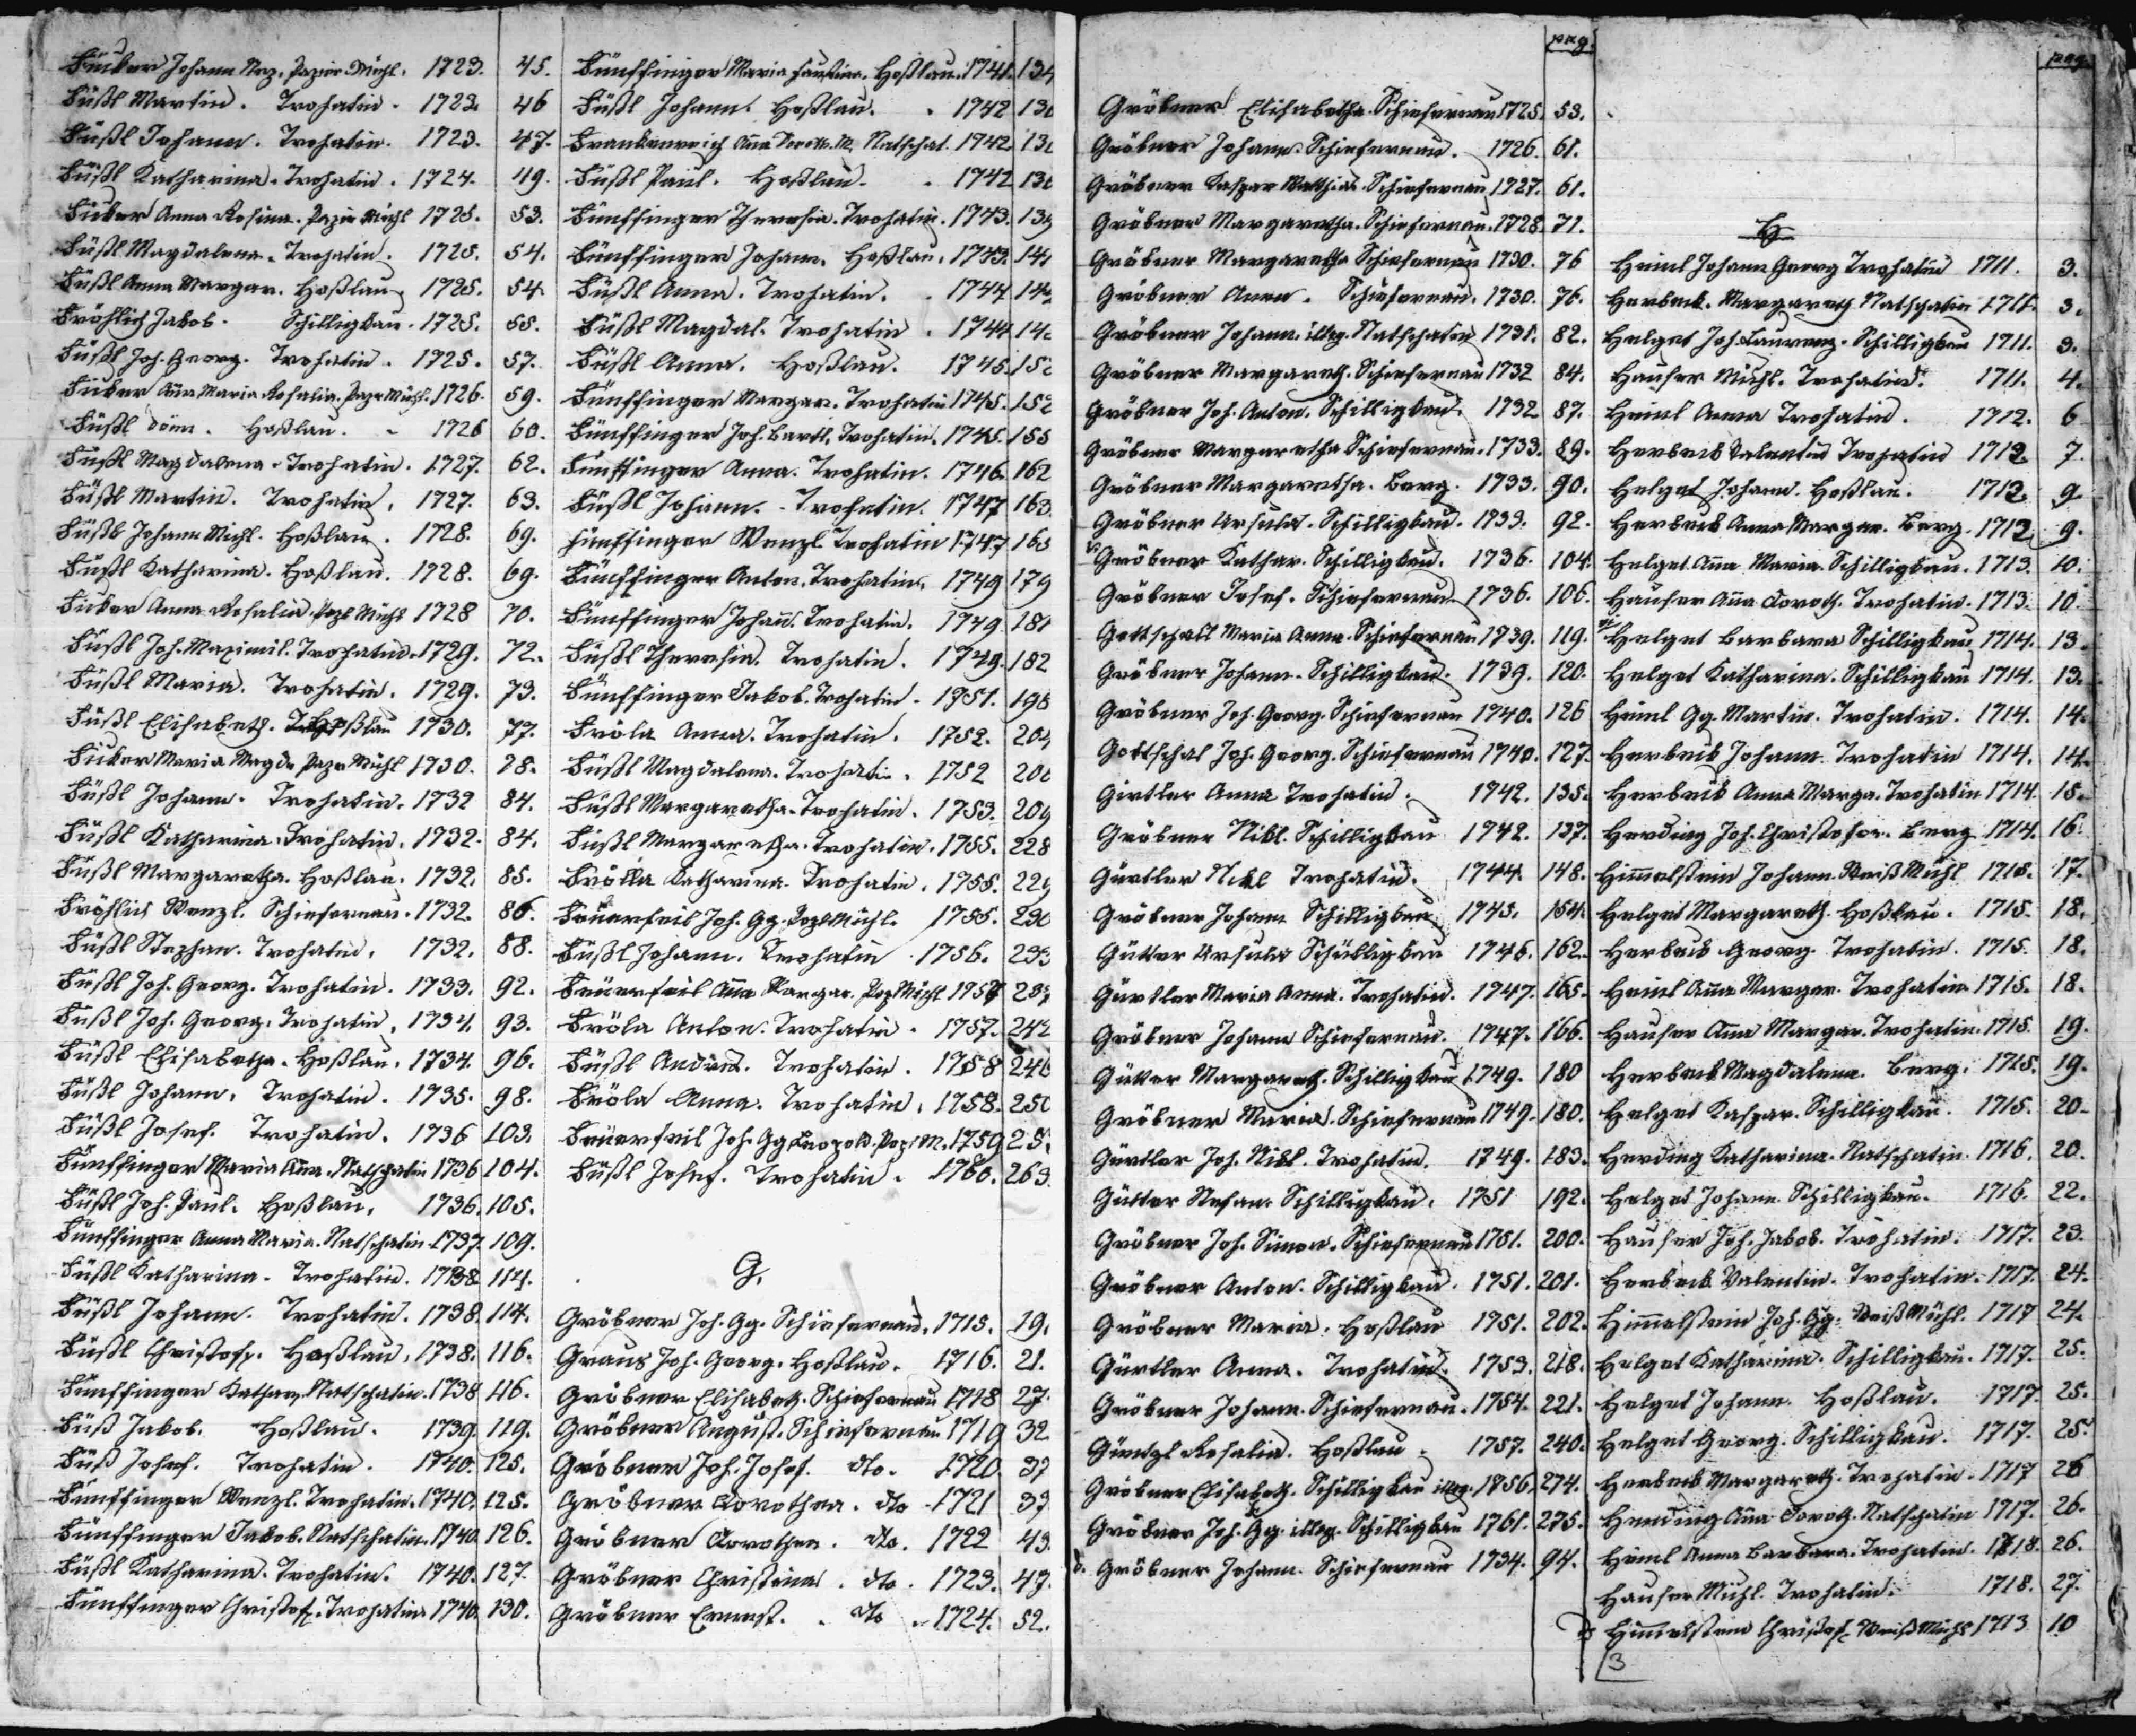 Fücker Johann Nep. Papier Mühl. 1723. 45.
Füßl Martin. Trohatin. 1723. 46
Füßl Johann. Trohatin. 1723. 47.
Füßl Katharina. Trohatin. 1724. 49.
Fücker Anna Rosina. Papier Mühl 1725. 53.
Füßl Magdalena. Trohatin. 1725. 54.
Füßl Anna Margar. Hoßlau 1725. 54.
Fröhlich Jakob. Schilligkau. 1725. 55.
Füßl Joh. Georg. Trohatin. 1725. 57.
Fücker Aña Maria Rosalia. Papr Mühl. 1726. 59.
Füßl Hoßlau. 1726 60.
Füßl Magdalena. Trohatin. 1727. 62.
Füßl Martin. Trohatin. 1727. 63.
Füßl Johann Michl. Hoßlau. 1728. 69.
Füßl Katharina. Hoßlau. 1728. 69.
Fücker Anna Rosalia. Mühl 1728 70.
Füßl Joh. Maximil. Trohatin. 1729. 72.
Füßl Maria. Trohatin. 1729. 73.
Füßl Elisabeth. Hoßlau 1730. 77.
Fücker Maria Magd. Papr Mühl 1730. 78.
Füßl Johann. Trohatin. 1732 84.
Füßl Katharina. Trohatin. 1732. 84.
Füßl Margaretha. Hoßlau. 1732. 85.
Fröhlich Wenzl. Schiefernau. 1732. 86.
Füßl Stephan. Trohatin. 1732. 88.
Füßl Joh. Georg. Trohatin. 1733. 92.
Füßl Joh. Georg. Trohatin. 1734. 93.
Füßl Elisabetha. Hoßlau. 1734. 96.
Füßl Johann. Trohatin. 1735. 98.
Füßl Josef. Trohatin. 1736 103.
Fünffinger Maria Aña. Natschatin 1736 104.
Füßl Joh. Paul. Hoßlau. 1736. 105.
Fünffinger Anna Maria. Natschatin 1737. 109.
Füßl Katharina. Trohatin. 1738 114.
Füßl Johann. Trohatin. 1738. 114.
Füßl Christoph. Hoßlau. 1738. 116.
Fünffinger Kathar. Natschatin. 1738 116.
Füß Jakob. Hoßlau. 1739. 119.
Füß Josef. Trohatin. 1740. 125.
Fünffinger Wenzl. Trohatin. 1740. 125.
Fünffinger Jakob. Natschatin. 1740. 126.
Füßl Katharina. Trohatin. 1740. 127.
Fünffinger Christof. Trohatin 1740. 130.
Fünffinger Maria Faustina. Hoßlau. 1741. 134
Füßl Johann. Hoßlau. 1742 13
Frankenreich Aña Doroth. M. Natschat. 1742. 13
Füßl Paul. Hoßlau. 1742 13
Fünffinger Theresia. Trohatin. 1743. 139
Fünffinger Johann. Hoßlau. 1743. 14
Füßl Anna. Trohatin. 1744 14
Füßl Magdal. Trohatin. 1744. 14
Füßl Anna. Hoßlau. 1745. 15
Fünffinger Margar. Trohatin 1745. 152
Fünffinger Joh. Bartl. Trohatin. 1745. 155
Fünffinger Anna. Trohatin. 1746. 162
Füßl Johann. Trohatin. 1747 163
Fünffinger Wenzl. Trohatin 1747 165
Fünffinger Anton. Trohatin. 1749 179
Fünffinger Johañ. Trohatin. 1749 181
Füßl Theresia. Trohatin. 1749. 182
Fünffinger Jakob. Trohatin. 1751. 198
Fröla Anna. Trohatin. 1752. 204
Füßl Magdalena. Trohatin. 1752 20
Füßl Margaretha. Trohatin. 1753. 209
Füßl Margaretha. Trohatin. 1755. 228
Frölla Katharina. Trohatin. 1755. 229
Feuerfeil Joh. Gg. Mühl. 1755. 230
Füßl Johann. Trohatin 1756. 233
Feuerfeil Aña Margar. Pap Mühl 1757 237
Fröla Anton. Trohatin. 1757. 242
Füßl Andreas. Trohatin. 1758 246
Fröla Anna. Trohatin. 1758. 250
Feuerfeil Joh. Gg Leopold. Pap. M. 1759 25
Füßl Josef. Trohatin. 1760. 263
G.
Gröbner Joh. Gg. Schiefernau. 1715. 19.
Graus Joh. Georg. Hoßlau. 1716. 21.
Gröbner Elisabeth. Schiefernau 1718 27.
Gröbner August. Schiefernau 1719 32.
Gröbner Joh. Josef. dto. 1720. 37
Gröbner Dorothea. dto 1721 37
Gröbner Dorothea. dto. 1722 43.
Gröbner Christina. dto. 1723. 47.
Gröbner Ernest. dto 1724. 52.
pag.
Gröbner Elisabetha. Schiefernau 1725. 53.
Gröbner Johann. Schiefernau. 1726. 61.
Gröbner Kaspar Matthias. Schiefernau 1727. 61.
Gröbner Margaretha. Schiefernau. 1728. 71.
Gröbner Margaretha Schiefernau 1730. 76
Gröbner Anna. Schiefernau. 1730. 76.
Gröbner Johann. illeg. Natschatin 1731. 82.
Gröbner Margareth. Schiefernau 1732 84.
Gröbner Joh. Anton. Schilligkau. 1732 87.
Gröbner Margaretha Schiefernau. 1733. 89.
Gröbner Margaretha. Berg. 1733. 90.
Gröbner Ursula. Schilligkau. 1733. 92.
Gröbner Kathar. Schilligkau. 1736. 104.
Gröbner Josef. Schiefernau 1736. 106.
Gottschall Maria Anna. Schiefernau 1739. 119.
Gröbner Johann. Schilligkau. 1739. 120.
Gröbner Joh. Georg. Schiefernau 1740. 126
Gottschal Joh. Georg. Schiefernau 1740. 127.
Girtler Anna Trohatin. 1742. 135.
Gröbner Nikl. Schilligkau 1742. 137.
Gürtler Nikl Trohatin. 1744. 148.
Gröbner Johann Schilligkau 1745. 154.
Gütter Ursula Schilligkau 1746. 162.
Gürtler Maria Anna. Trohatin. 1747. 165.
Gröbner Johann Schiefernau. 1747. 166.
Gütter Margareth. Schilligkau 1749. 180
Gröbner Maria. Schiefernau 1749. 180.
Gürtler Joh. Nikl. Trohatin. 1749. 183.
Gütter Stefan. Schilligkau. 1751 192.
Gröbner Joh. Simon. Schiefernau 1751. 200.
Gröbner Anton. Schilligkau. 1751. 201.
Gröbner Maria. Hoßlau 1751. 202.
Gürtler Anna. Trohatin. 1753. 218.
Gröbner Johann. Schiefernau. 1754. 221.
Güntzl Rosalia. Hoßlau 1757. 240.
Gröbner Elisabeth. Schilligkau illeg. 1756. 274.
Gröbner Joh. Gg. illeg. Schilligkau 1761. 275.
Gröbner Johann. Schiefernau 1734. 94.
pag.
H
Heinl Johann Georg Trohatin 1711. 3.
Herbeck. Margareth Natschatin 1711. 3.
Helget Joh. Laurenz. Schilligkau 1711. 3.
Hauser Michl. Trohatin. 1711. 4.
Heinl Anna Trohatin. 1712. 6
Herbeck Valentin Trohatin 1712. 7.
Helget Johann. Hoßlau. 1712. 9
Herbeck Anna Margar. Berg. 1712 9.
Helget Aña Maria. Schilligkau. 1713. 10.
Hauser Aña Doroth. Trohatin. 1713. 10.
Helget Barbara Schilligkau 1714. 13.
Helget Katharina. Schilligkau 1714. 13.
Heinl Gg. Martin. Trohatin. 1714. 14.
Herbeck Johann. Trohatin 1714. 14.
Herbeck Anna Marga. Trohatin 1714. 15.
Herding Joh. Christofor. Berg 1714. 16.
Himelstein Johann. Weiß Mühl 1715. 17.
Helget Margareth. Hoßlau. 1715. 18.
Herbeck Georg. Trohatin. 1715. 18.
Heinl Aña Margar. Trohatin 1715. 18.
Hauser Aña Margar. Trohatin. 1715. 19.
Herbeck Magdalena. Berg. 1715. 19.
Helget Kaspar. Schilligkau. 1715. 20.
Herding Katharina. Natschatin. 1716. 20.
Helget Johann. Schilligkau. 1716. 22.
Hauser Joh. Jakob. Trohatin. 1717. 23.
Herbeck Valentin. Trohatin. 1717. 24.
Himelstein Joh. Gg. Weiß Mühl. 1717 24.
Helget Katharina. Schilligkau. 1717. 25.
Helget Johann. Hoßlau. 1717. 25.
Helget Georg. Schilligkau. 1717. 25.
Herbeck Margareth. Trohatin. 1717 26
Herding Aña Doroth. Natschatin 1717. 26.
Heinl Anna Barbara. Trohatin. 1718. 26.
Hauser Michl. Trohatin. 1718. 27.
Himelstein Christof. Weiß Mühl 1713 10
3